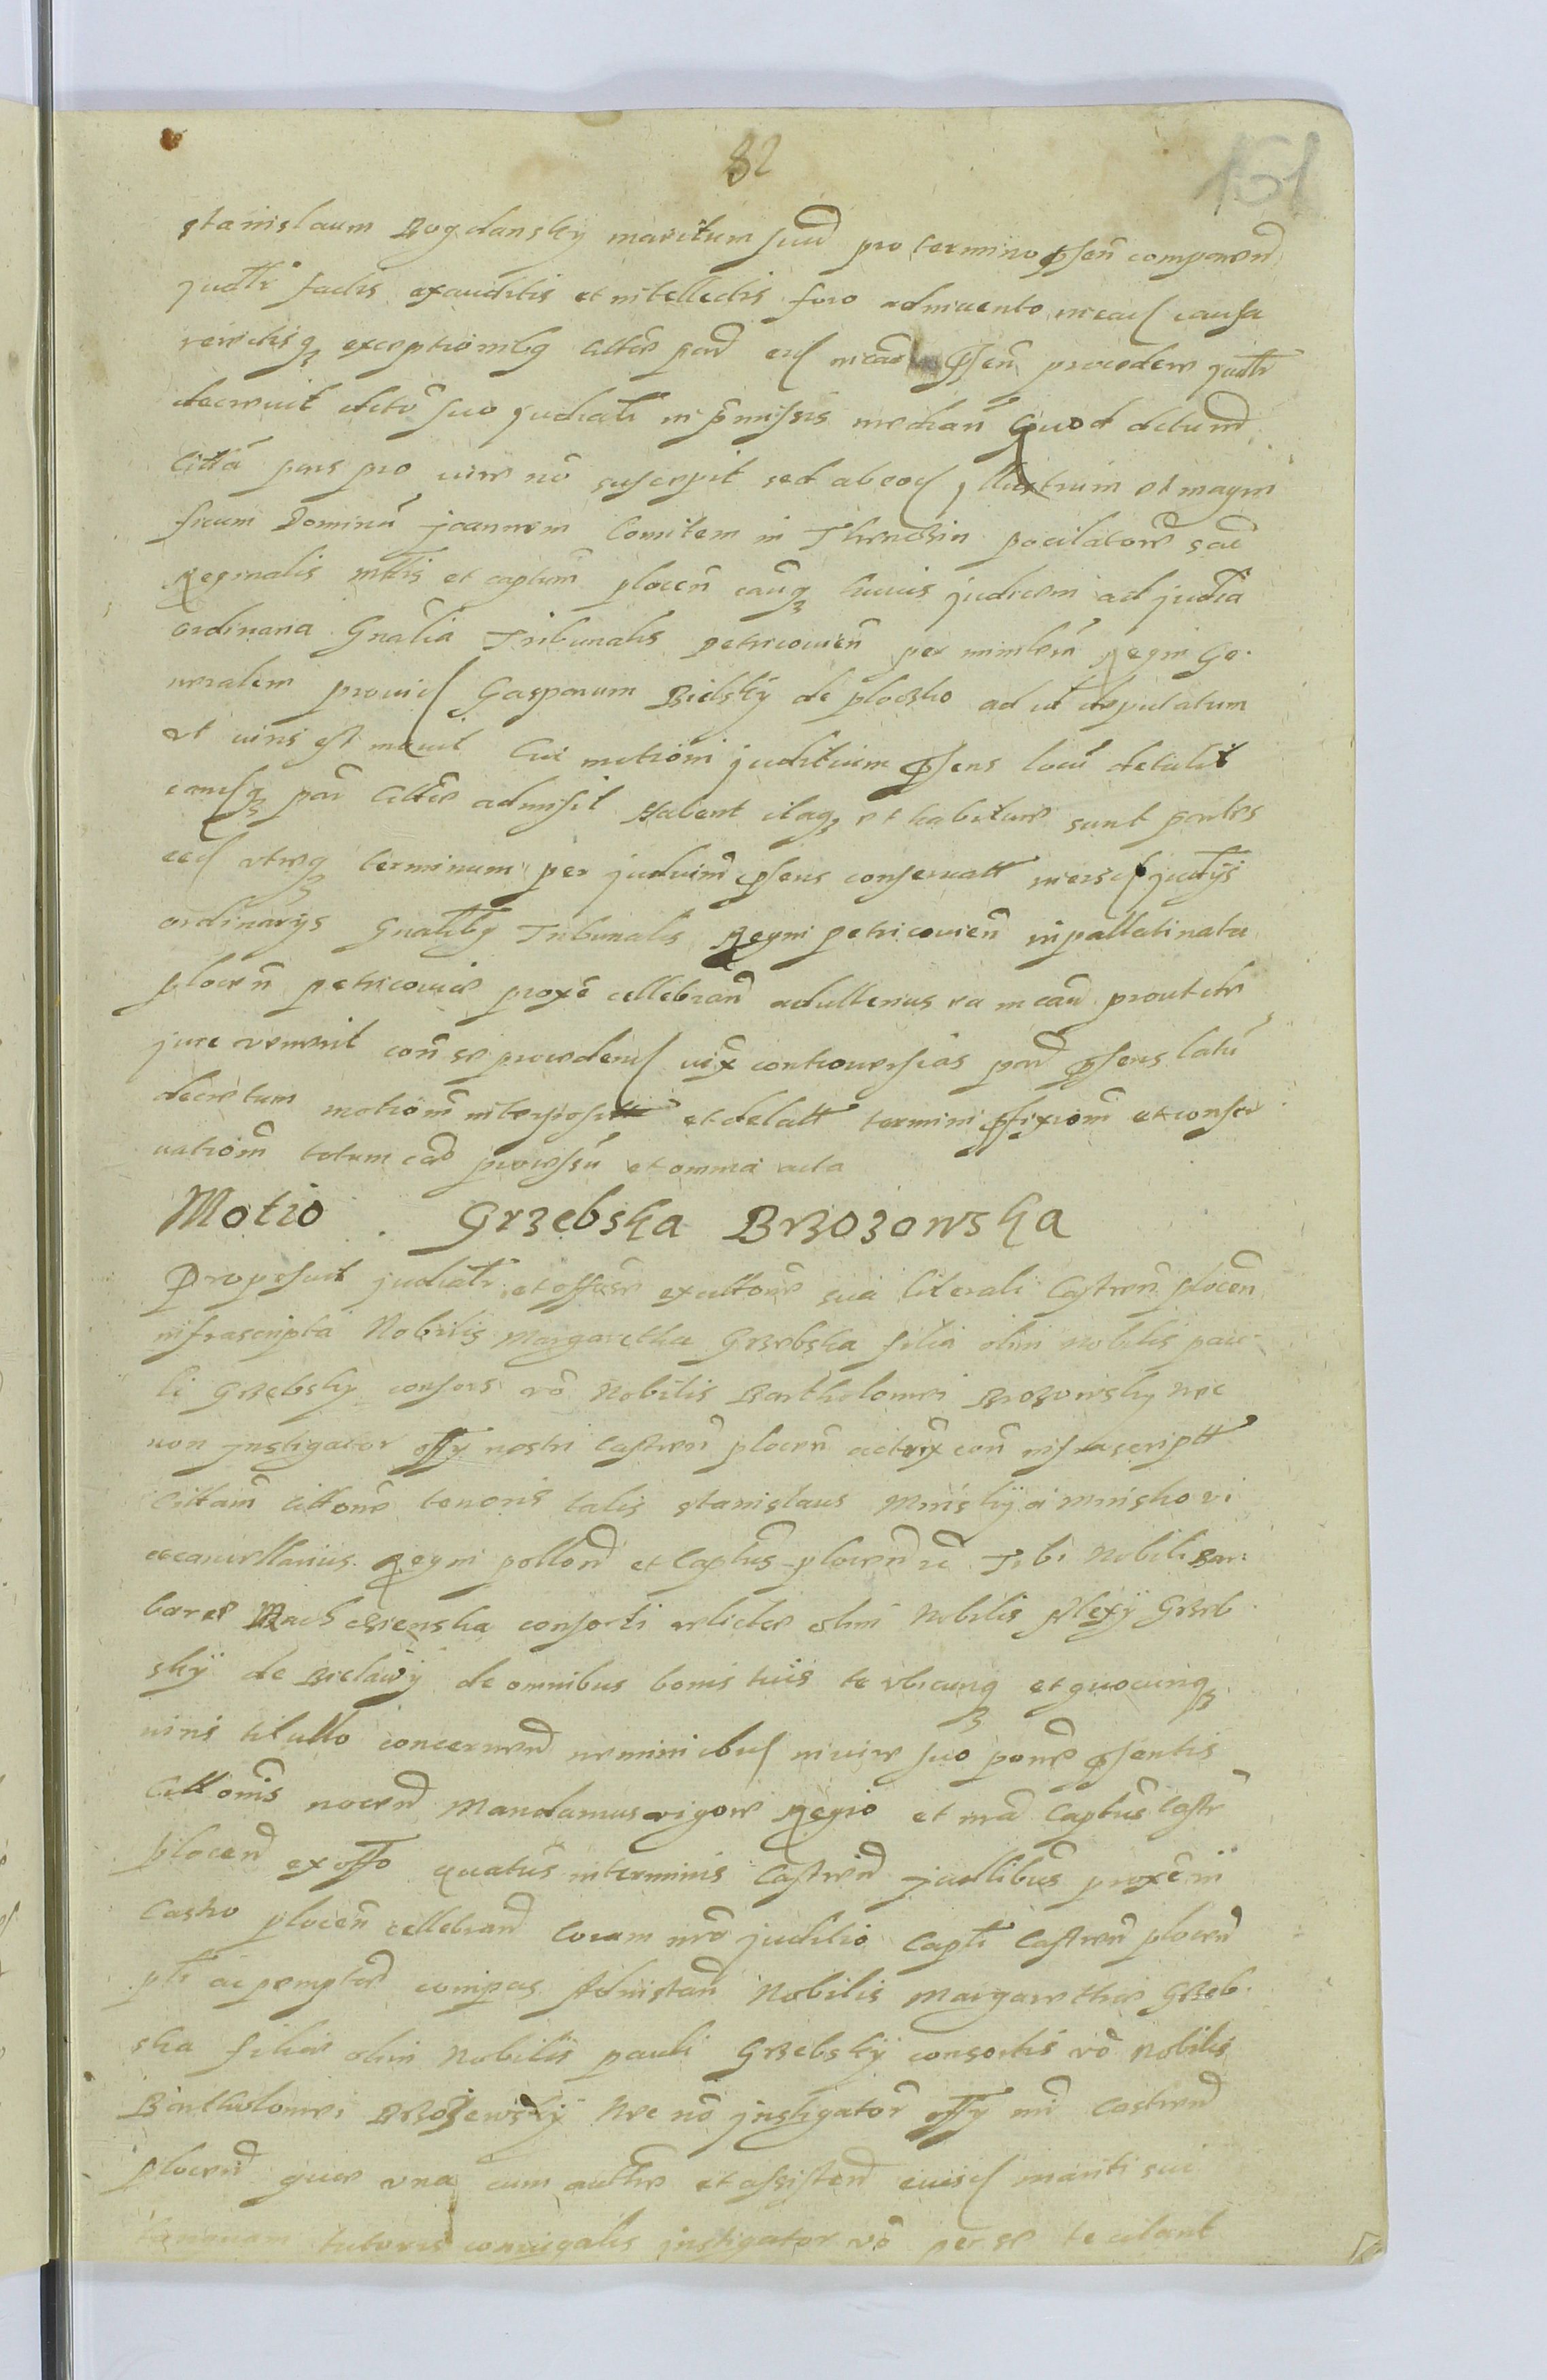 82
151
stanislaum Bogdansky maritum suu pro termino psen comparen
judtr factis exauditis et intellectis foro admuento in eade causa
reiectisq exceptionibq cittae par eid in cau psen procedere judtr
decreuit dcto suo judiciali in pmissis median Quod decretum
citta pars pro iure no suscepit sed ab eod Illustrum et magni
ficum Dominu joannem Comitem in Thenczin pocilatore sac
Reginalis mttis et captum plocen causq huius judicem ad judicia
ordinaria Gnalia Tribunalis petricouien per ministru Regni Ge
neralem prouid Gasparum Bielsky de ploczko ad id deputatum
vt iuris est mouit Cui motioni juditium psens locu detulit
eamsq par cittae admisit Habent itaq et habiture sunt partes
eed vtreq terminum per judicium psens conseruatt in eisd judtijs
ordinarijs Gnalibq Tribunalis Regni petricouien in pallatinatu
plocen petricouie proxe cellebran ad ulterius ea in cau prout de
jure venerit con se procedend iux controuersias par psens latu
decretum motiom interposit et delatt termini pfixiom et conser
uatiom totum cae processu et omnia acta
Motio . Grzebska Brzozowska
Proposuit judicialr et offose exacttore sua literali Castren plocen
infrascripta Nobilis Margaretha Grzebska filia olim nobilis pau
li Grzebsky consors vo Nobilis Bartholomei Brzozowsky nec
non jnstigator offij nostri castren plocen actrix con infrascriptt
cittam cittone tenoris talis stanislaus Minsky a minsko vi
cecancellarius Regni pollon et Captus plocen ec Tibi Nobili Bar
barae consorti relictae olim Nobilis Alexy Grzeb
skÿ de Bielawÿ de omnibus bonis tuis te vbicunq et quocunq
iuris titullo concernen nemini ibid in iure suo pone psentis
Cittonis nocen Mandamus rigore Regio et nra Captus castr
plocen ex offo quatus in terminis castren judlibus proxe in
Castro plocen cellebran coram nro juditio capti castren plocen
plr ac pempte compas Ad instan Nobilis Margarethae Grzeb
ska filiae olim Nobilis pauli Grzebskÿ consortis vo nobilis
Bartholomei Brzozewskÿ Nec no jnstigator offij nri castren
plocen quae vna cum autthe et assisten eiusd mariti sui
tanquam tutoris coniugalis jnstigator vo per se te citant